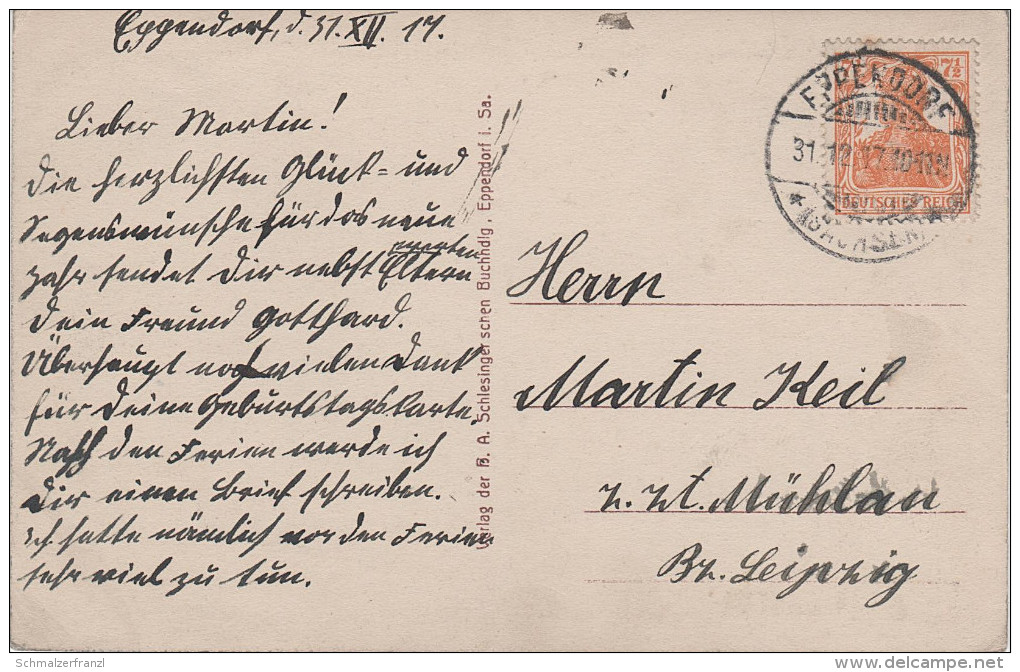 Eppendorf, d. 31. XII. 17.
Lieber Martin!
Die herzlichsten Glück- und
Segenswünsche für das neue
Jahr sendet Dir nebst werten
Eltern
Dein Freund Gotthard.
Überhaupt noch vielen Dank
für Deine Geburtstagskarte.
Nach den Ferien werde ich
Dir einen Brief schreiben.
Ich hatte nämlich vor den Ferien
sehr viel zu tun.
Verlag der H. A. Schlesinger'schen Buchhdlg., Eppendorf i. Sa.
7½
DEUTSCHES REICH
EPPENDORF
31.12.17.10-11V
(SACHSEN)
Herrn
Martin Keil
z. Zt. Mühlau
Bz. Leipzig
Schmalzerfranzl
delcampe.net